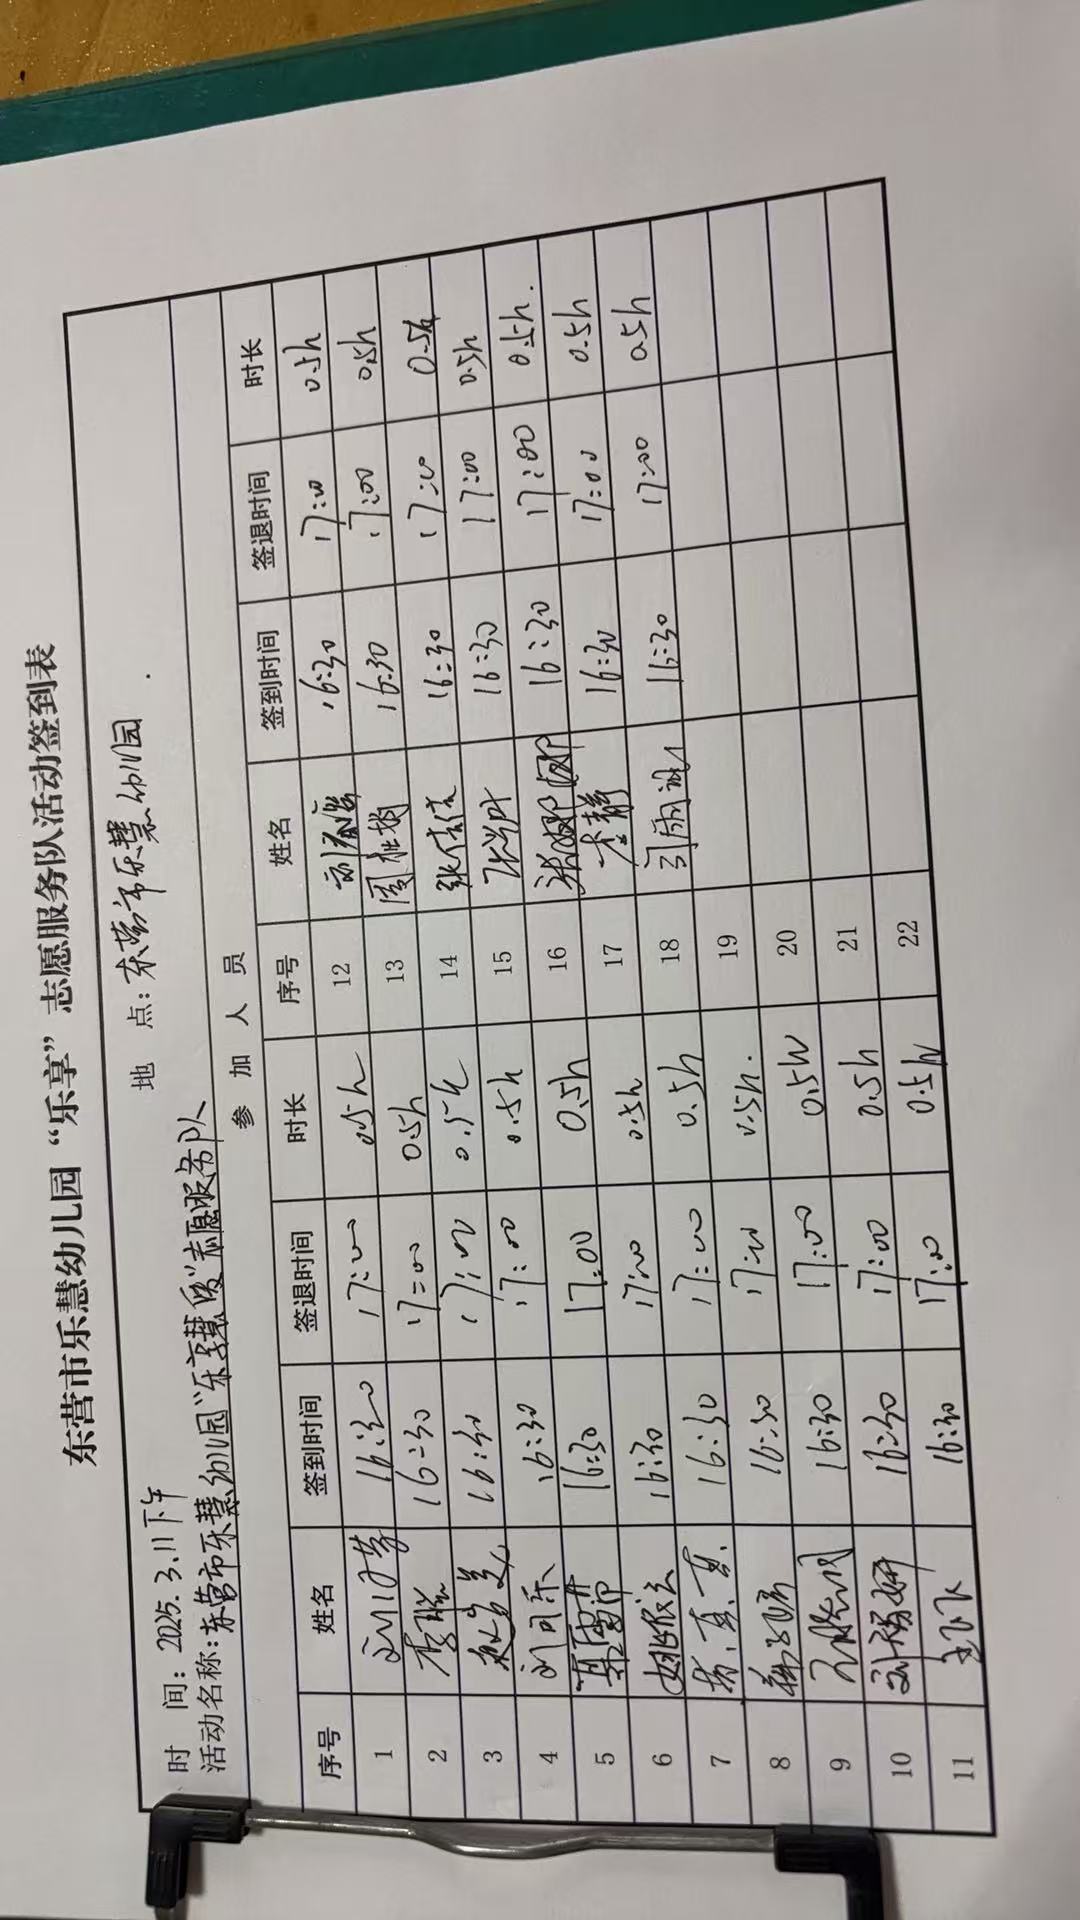 东营市乐慧幼儿园“乐享”志愿服务队活动签到表
时 间：2025.3.11下午 地 点：东营市乐慧幼儿园
活动名称：东营市乐慧幼儿园“乐享慧爱”志愿服务队
参 加 人 员
序号 姓名 签到时间 签退时间 时长 序号 姓名 签到时间 签退时间 时长
1 16:30 17:00 0.5h 12 刘春海 16:30 17:00 0.5h
2 李聪 16:30 17:00 0.5h 13 周桃梢 16:30 17:00 0.5h
3 16:30 17:00 0.5h 14 张倩倩 16:30 17:00 0.5h
4 刘可乐 16:30 17:00 0.5h 15 张学叶 16:30 17:00 0.5h
5 綦雷苹 16:30 17:00 0.5h 16 张娜娜 16:30 17:00 0.5h.
6 姚依云 16:30 17:00 0.5h 17 李静 16:30 17:00 0.5h
7 16:30 17:00 0.5h 18 16:30 17:00 0.5h
8 16:30 17:00 0.5h. 19
9 16:30 17:00 0.5h 20
10 刘杨妍 16:30 17:00 0.5h 21
11 王飞飞 16:30 17:00 0.5h 22